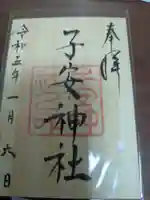 奉拝
子安神社
令和五年一月六日